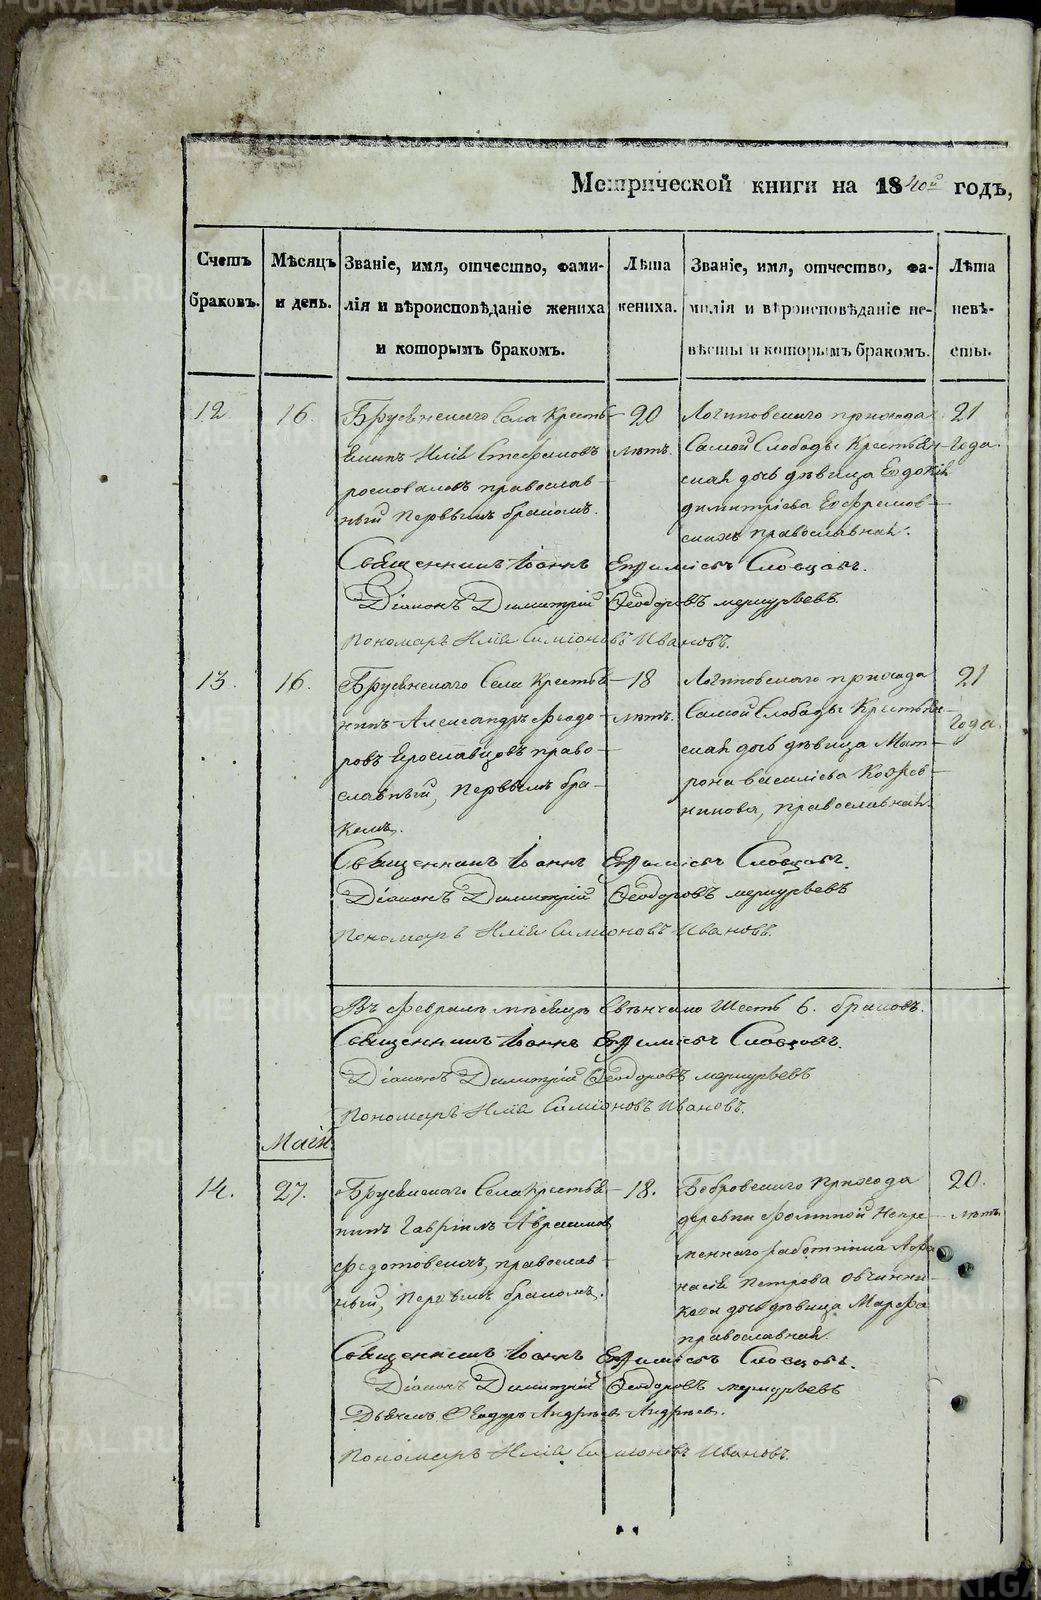 Метрической книги на 1840й годъ,
Счетъ браковъ.
Мѣсяцъ и день.
Званіе, имя, отчество, фами-
лія и вѣроисповѣданіе жениха
и которымъ бракомъ.
Лѣта
жениха.
Званіе, имя, отчество, фа-
милія и вѣроисповѣданіе не-
вѣсты и которымъ бракомъ.
Лѣта
невѣ-
сты.
12
16.
Брусянскаго Села Кресть-
янинъ Илія Стефановъ
православ-
ный Первымъ бракомъ.
20
лѣтъ.
Логиновскаго прихода
Самой Слободы Крестьян-
ская дочь дѣвица Евдокія
Димитріева Ефремов-
скихъ православная.
21
Года.
Священникъ Іоаннъ Евфиміевъ Словцовъ.
Діаконъ Димитрій Ѳеодоровъ Меркурьевъ.
Пономарь Илія Симіоновъ Ивановъ.
13.
16.
Брусянскаго Села Крестья-
нинъ Александръ Феодо-
ровъ Ярославцовъ право-
славный, Первымъ бра-
комъ.
18
лѣтъ.
Логиновскаго прихода
Самой Слободы Крестьян-
ская дочь дѣвица Мат-
рона Василіева Кожев-
никова, православная.
21
года.
Священникъ Іоаннъ Евфиміевъ Словцовъ.
Діаконъ Димитрій Ѳеодоровъ Меркурьевъ
Пономарь Илія Симіоновъ Ивановъ.
Въ Февралѣ мѣсяцѣ Свѣнчано Шесть 6. браковъ.
Священникъ Іоаннъ Евфиміевъ Словцовъ.
Діаконъ Димитрій Ѳеодоровъ Меркурьевъ
Пономарь Илія Симіоновъ Ивановъ.
Маія
14.
27.
Брусянскаго Села Крестья-
нинъ Гавріилъ Авраамовъ
Федотовскихъ, православ-
ный, Первымъ бракомъ.
18.
Бобровскаго Прихода
деревни Фоминой Непре-
меннаго работника Афа-
насія Петрова Овчинни-
кова дочь дѣвица Марфа
православная.
20.
лѣтъ.
Священникъ Іоаннъ Евфиміевъ Словцовъ.
Діаконъ Димитрій Ѳеодоровъ Меркурьевъ
Дьячекъ Ѳеодоръ Андреевъ Андреевъ.
Пономарь Илія Симіоновъ Ивановъ.
METRIKI.GASO-URAL.RU